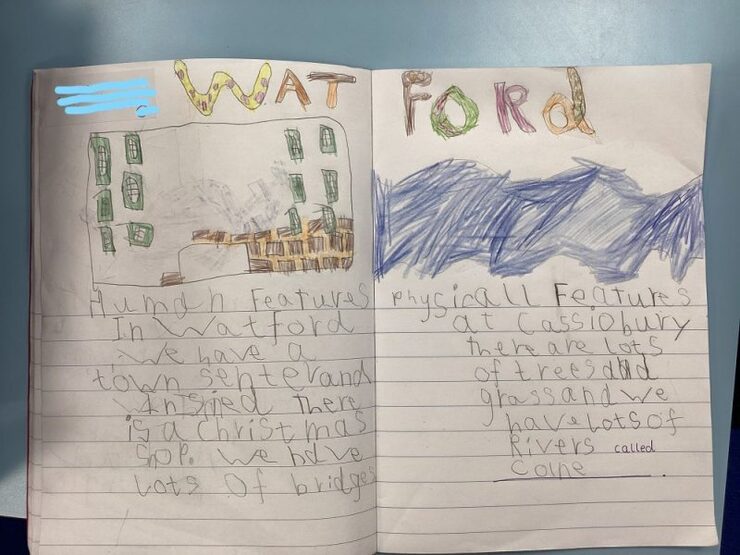 WATFORd
Human Features
In Watford
we have a
town senter and
there
is a christmas
Sop. we have
lots of bridges
Physicall Features
at Cassiobury
there are lots
of trees and
grass and we
have lots of
Rivers called
Colne.